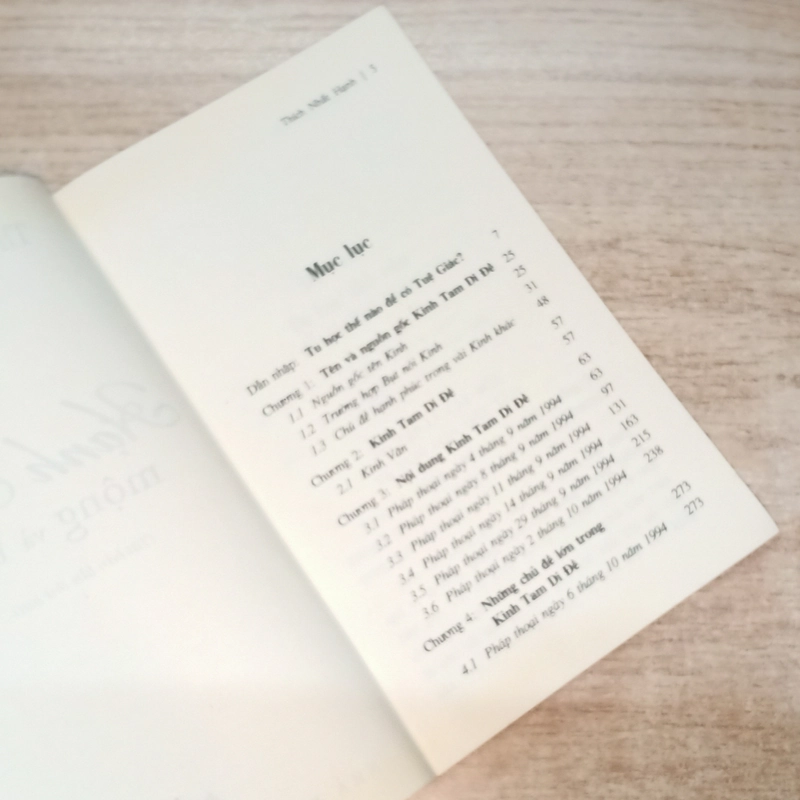 Thích Nhất Hạnh | 5
Mục lục
Dẫn nhập: Tu học thế nào để có Tuệ Giác? 7
Chương 1: Tên và nguồn gốc Kinh Tam Di Đề 25
1.1 Nguồn gốc tên Kinh 25
1.2 Trường hợp Bụt nói Kinh 31
1.3 Chủ đề hạnh phúc trong vài Kinh khác 48
Chương 2: Kinh Tam Di Đề 57
2.1 Kinh Văn 57
Chương 3: Nội dung Kinh Tam Di Đề 63
3.1 Pháp thoại ngày 4 tháng 9 năm 1994 63
3.2 Pháp thoại ngày 8 tháng 9 năm 1994 97
3.3 Pháp thoại ngày 11 tháng 9 năm 1994 131
3.4 Pháp thoại ngày 14 tháng 9 năm 1994 163
3.5 Pháp thoại ngày 29 tháng 9 năm 1994 215
3.6 Pháp thoại ngày 2 tháng 10 năm 1994 238
Chương 4: Những chủ đề lớn trong
Kinh Tam Di Đề 273
4.1 Pháp thoại ngày 6 tháng 10 năm 1994 273
mộng và